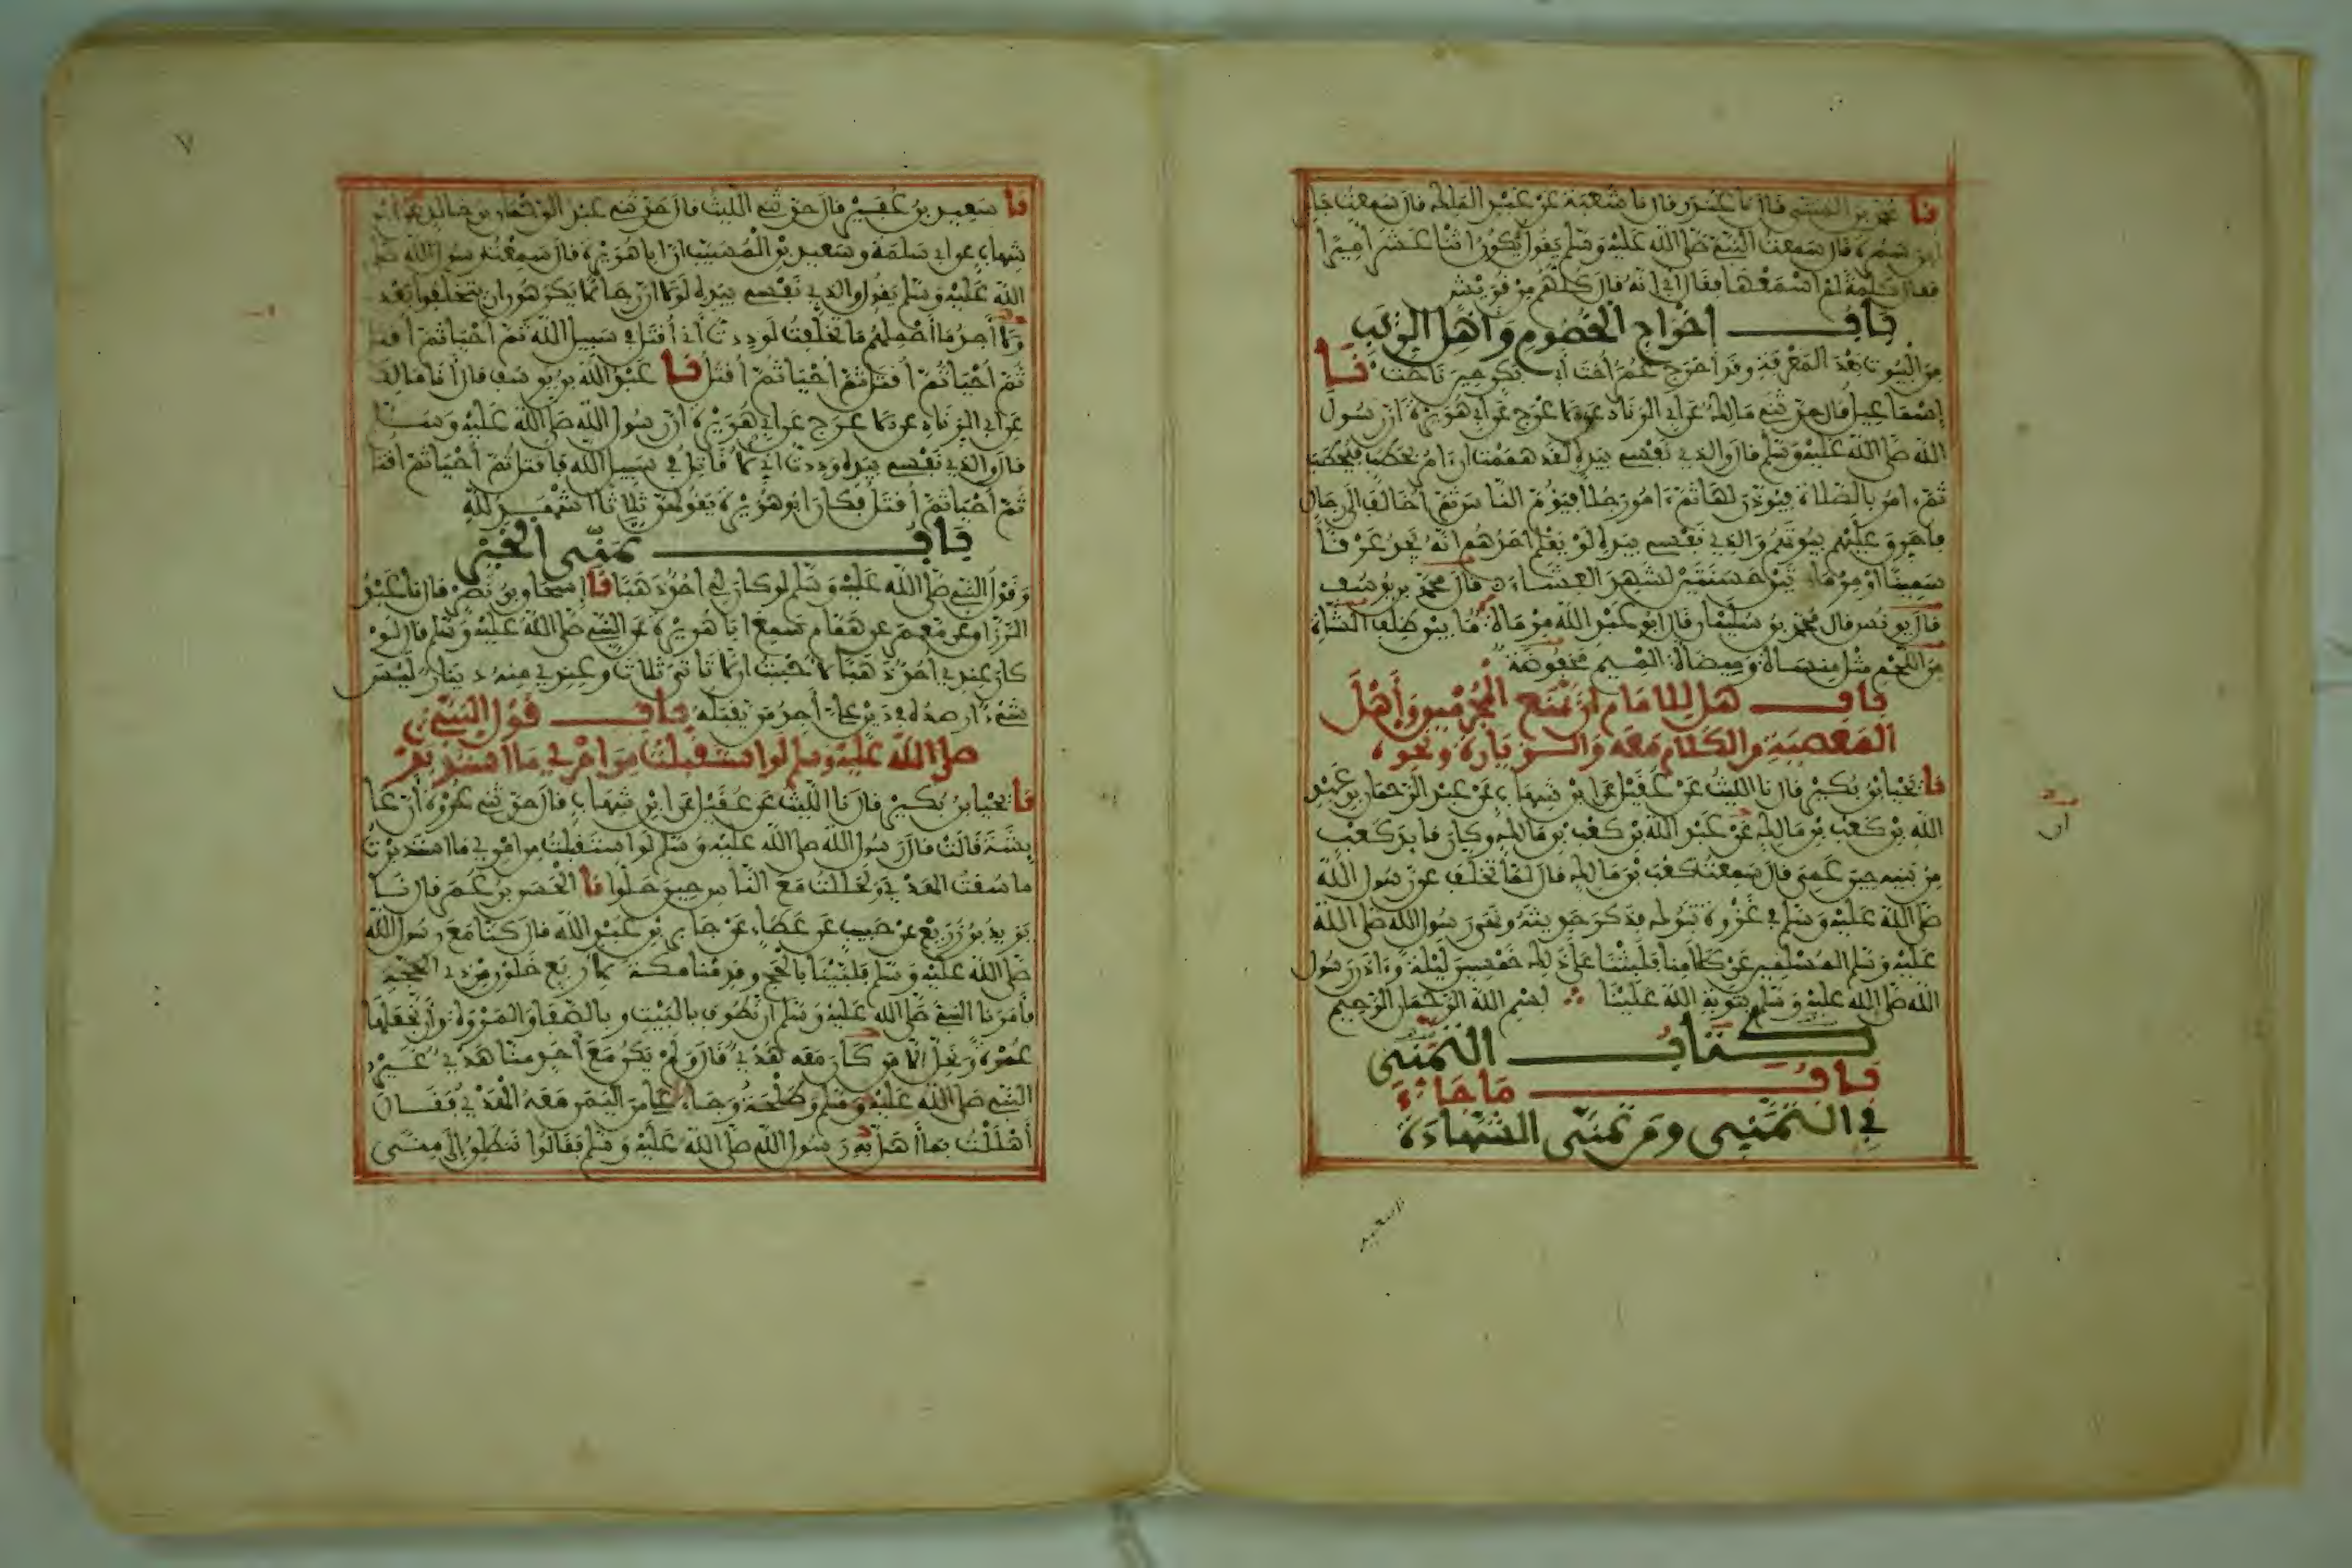 نا محمد بن المثنى قال نا غندر قال نا شعبة عن عبد الملك قال سمعت جابر
ابن سمرة قال سمعت النبي صلى الله عليه وسلم يقول يكون اثنا عشر أميرا
فقال كلمة لم اسمعها فقال أبي انه قال كلهم من قريش
باب إخراج الخصوم وأهل الريب
من البيوت بعد المعرفة وقد أخرج عمر أخت أبي بكر حين ناحت نا
إسماعيل قال حدثني مالك عن أبي الزناد عن الأعرج عن أبي هريرة أن رسول
الله صلى الله عليه وسلم قال والذي نفسي بيده لقد هممت أن ءامر بحطب فيحطب
ثم ءامر بالصلاة فيوذن لها ثم ءامر رجلا فيؤم الناس ثم أخالف إلى رجال
فأحرق عليهم بيوتهم والذي نفسي بيده لو يعلم أحدهم انه يجد عرقا
سمينا أو مرماتين حسنتين لشهد العشاء قال محمد بن يوسف
قال يونس قال محمد بن سليمان قال ابو عبد الله مرماة ما بين ظلف الشاة
من اللحم مثل منساة وميضاة الميم مخفوضة
باب هل للامام أن يمنع المجرمين وأهل
المعصية من الكلام معه والزيارة ونحوه
نا يحيى بن بكير قال نا الليث عن عقيل عن ابن شهاب عن عبد الرحمان بن عبد
الله بن كعب بن مالك عن عبد الله بن كعب بن مالك وكان قايد كعب
من بنيه حين عمي قال سمعت كعب بن مالك قال لما تخلف عن رسول الله
صلى الله عليه وسلم في غزوة تبوك فذكر حديثه ونهى رسول الله صلى الله
عليه وسلم المسلمين عن كلامنا فلبثنا على ذلك خمسين ليلة وءاذن رسول
الله صلى الله عليه وسلم بتوبة الله علينا بسم الله الرحمان الرحيم
كتاب التمني
باب ما جاء
في التمني ومن تمنى الشهادة
سعيد
٧
نا سعيد بن عفير قال حدثني الليث قال حدثني عبد الرحمان بن خالد عن ابن
شهاب عن أبي سلمة وسعيد بن المسيب أن أبا هريرة قال سمعت رسول الله صلى
الله عليه وسلم يقول والذي نفسي بيده لولا أن رجالا يكرهون ان يتخلفوا بعدي
ولا أجد ما أحملهم ما تخلفت لوددت أني أقتل في سبيل الله ثم أحيا ثم أقتل
ثم أحيا ثم أقتل ثم أحيا ثم أقتل نا عبد الله بن يوسف قال أنا مالك
عن أبي الزناد عن الأعرج عن أبي هريرة أن رسول الله صلى الله عليه وسلم
قال والذي نفسي بيده وددت أني لأقاتل في سبيل الله فأقتل ثم أحيا ثم أقتل
ثم أحيا ثم أقتل فكان أبو هريرة يقولهن ثلاثا أشهد لله
باب تمني الخير
وقول النبي صلى الله عليه وسلم لو كان لي أحد ذهبا نا إسحاق بن نصر قال نا عبد
الرزاق عن معمر عن همام سمع أبا هريرة عن النبي صلى الله عليه وسلم قال لو
كان عندي أحد ذهبا لأحببت ان لا تأتي ثلاث وعندي منه دينار ليس
شيء أرصده في دين علي أجد من يقبله باب قول النبي
صلى الله عليه وسلم لو استقبلت من أمري ما استدبرت
نا يحيى بن بكير قال نا الليث عن عقيل عن ابن شهاب قال حدثني عروة أن عا
يشة قالت قال رسول الله صلى الله عليه وسلم لو استقبلت من أمري ما استدبرت
ما سقت الهدي ولحللت مع الناس حين حلوا نا الحسن بن عمر قال نا
يزيد بن زريع عن حبيب عن عطاء عن جابر بن عبد الله قال كنا مع رسول الله
صلى الله عليه وسلم فلبينا بالحج وقدمنا مكة لأربع خلون من ذي الحجة
فأمرنا النبي صلى الله عليه وسلم أن نطوف بالبيت وبالصفا والمروة وأن نجعلها
عمرة ونحل إلا من كان معه هدي قال ولم يكن مع أحد منا هدي غير
النبي صلى الله عليه وسلم وطلحة وجاء علي من اليمن معه الهدي فقال
أهللت بما أهل به رسول الله صلى الله عليه وسلم فقالوا ننطلق إلى منى